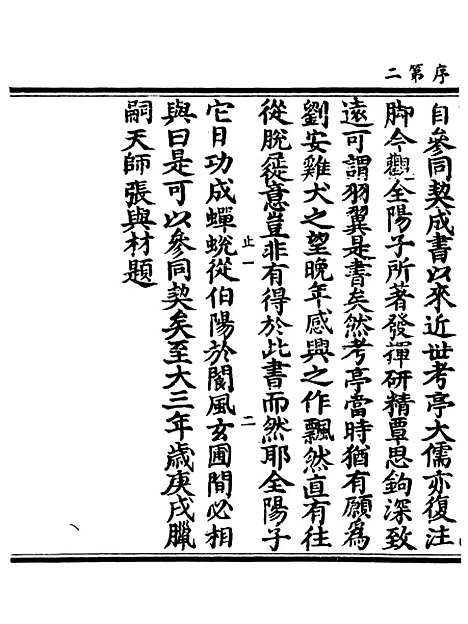 序第二
自參同契成書以來近世考亭大儒亦復注
脚今觀全陽子所著發揮研精覃思鉤深致
遠可謂羽翼是書矣然考亭當時猶有願為
劉安雞犬之望晚年感興之作飄然直有往
從脫屣意豈非有得於此書而然耶全陽子
止一 二
它日功成蟬蛻從伯陽於閬風玄圃間必相
與曰是可以參同契矣至大三年歲庚戌臘
嗣天師張與材題